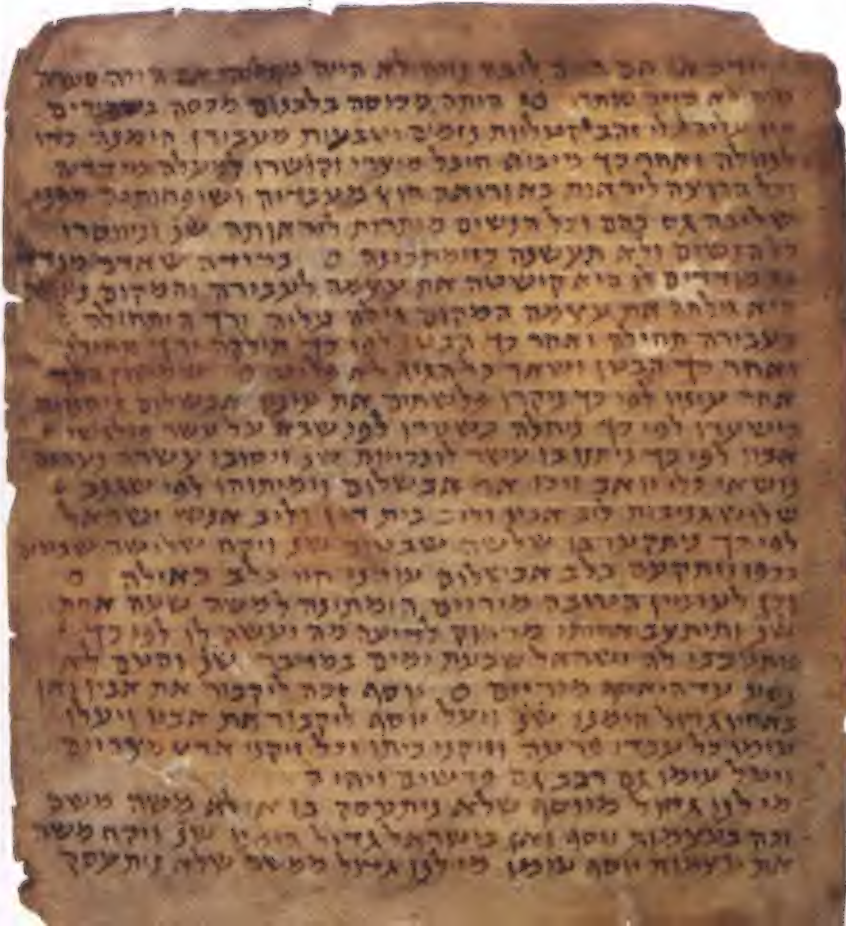 ליבה נווה לא היה מגלהו ואם היה סערה
לא היה סותרו ס היתה מכוסה בלבנים מכסה בשחורים
היו עליה כלי זהב קטליות נזמים וטבעות מעבירן הימנה כדי
לנוולה ואחר כך מיביא חיבל מיצרי וקושרו למעלה מידדיה
וכל הרוצה ליראות בא ורואה חוץ מעבדיה ושופחותיה מפני
שליבה גס בהם וכל הנשים מותרות לראותה שנ וניוסרו
כל הנשים ולא תעשנה כזימתכנה ס במידה שאדם מודד
בה מודדים לו היא קישטה את עצמה לעבירה והמקום
היא גילת את עצמה המקום גילה עליה ירך היתחילה
בעבירה תחילה ואחר כך הבטן לפי כך תילקה ירך תחילה
ואחר כך הבטן ושאר כל הגוף לא פליט ס שמשון הלך
אחר עיניו לפי כך ניקרו פלשתים את עיניו אבשלום
בישערו לפי כך ניתלה בשערו לפי שבא על עשר פילגשי
אביו לפי כך ניתנו בו עשר לונכיות שנ ויסובו עשרה נערים
נושאי כלי יואב ויכו את אבשלום וימיתוהו לפי שגנב
שלוש גניבות לב אביו וליב בית דין וליב אנשי ישראל
לפי כך ניתקעו בו שלשה שבטים שנ ויקח שלושה שבטים
בכפו ויתקעם בלב אבשלום עודנו חי בלב האילה ס
וכן לעינין הטובה מירים המתינה למשה שעה אחת
שנ ותיתצב אחותו מרחוק לדיעה מה יעשה לו לפי כך
נתעכבו לה ישראל שבעת ימים במדבר שנ והעם לא
נסע עד היאסף מרים ס יוסף זכה ליקבור את אביו ואין
באחיו גדול הימנו שנ ויעל יוסף ליקבור את אביו ויעלו
עימו כל עבדי פרעה וזיקני ביתו וכל זיקני ארץ מצרים
ויעל עימו גם רכב גם פרשים ויהי ה
מי לנו גדול מיוסף שלא ניתעסק בו אלא משה משה
זכה בעצמות יוסף ואין בישראל גדול הימנו שנ ויקח משה
את עצמות יוסף עימו מי לנו גדול ממשה שלא ניתעסק